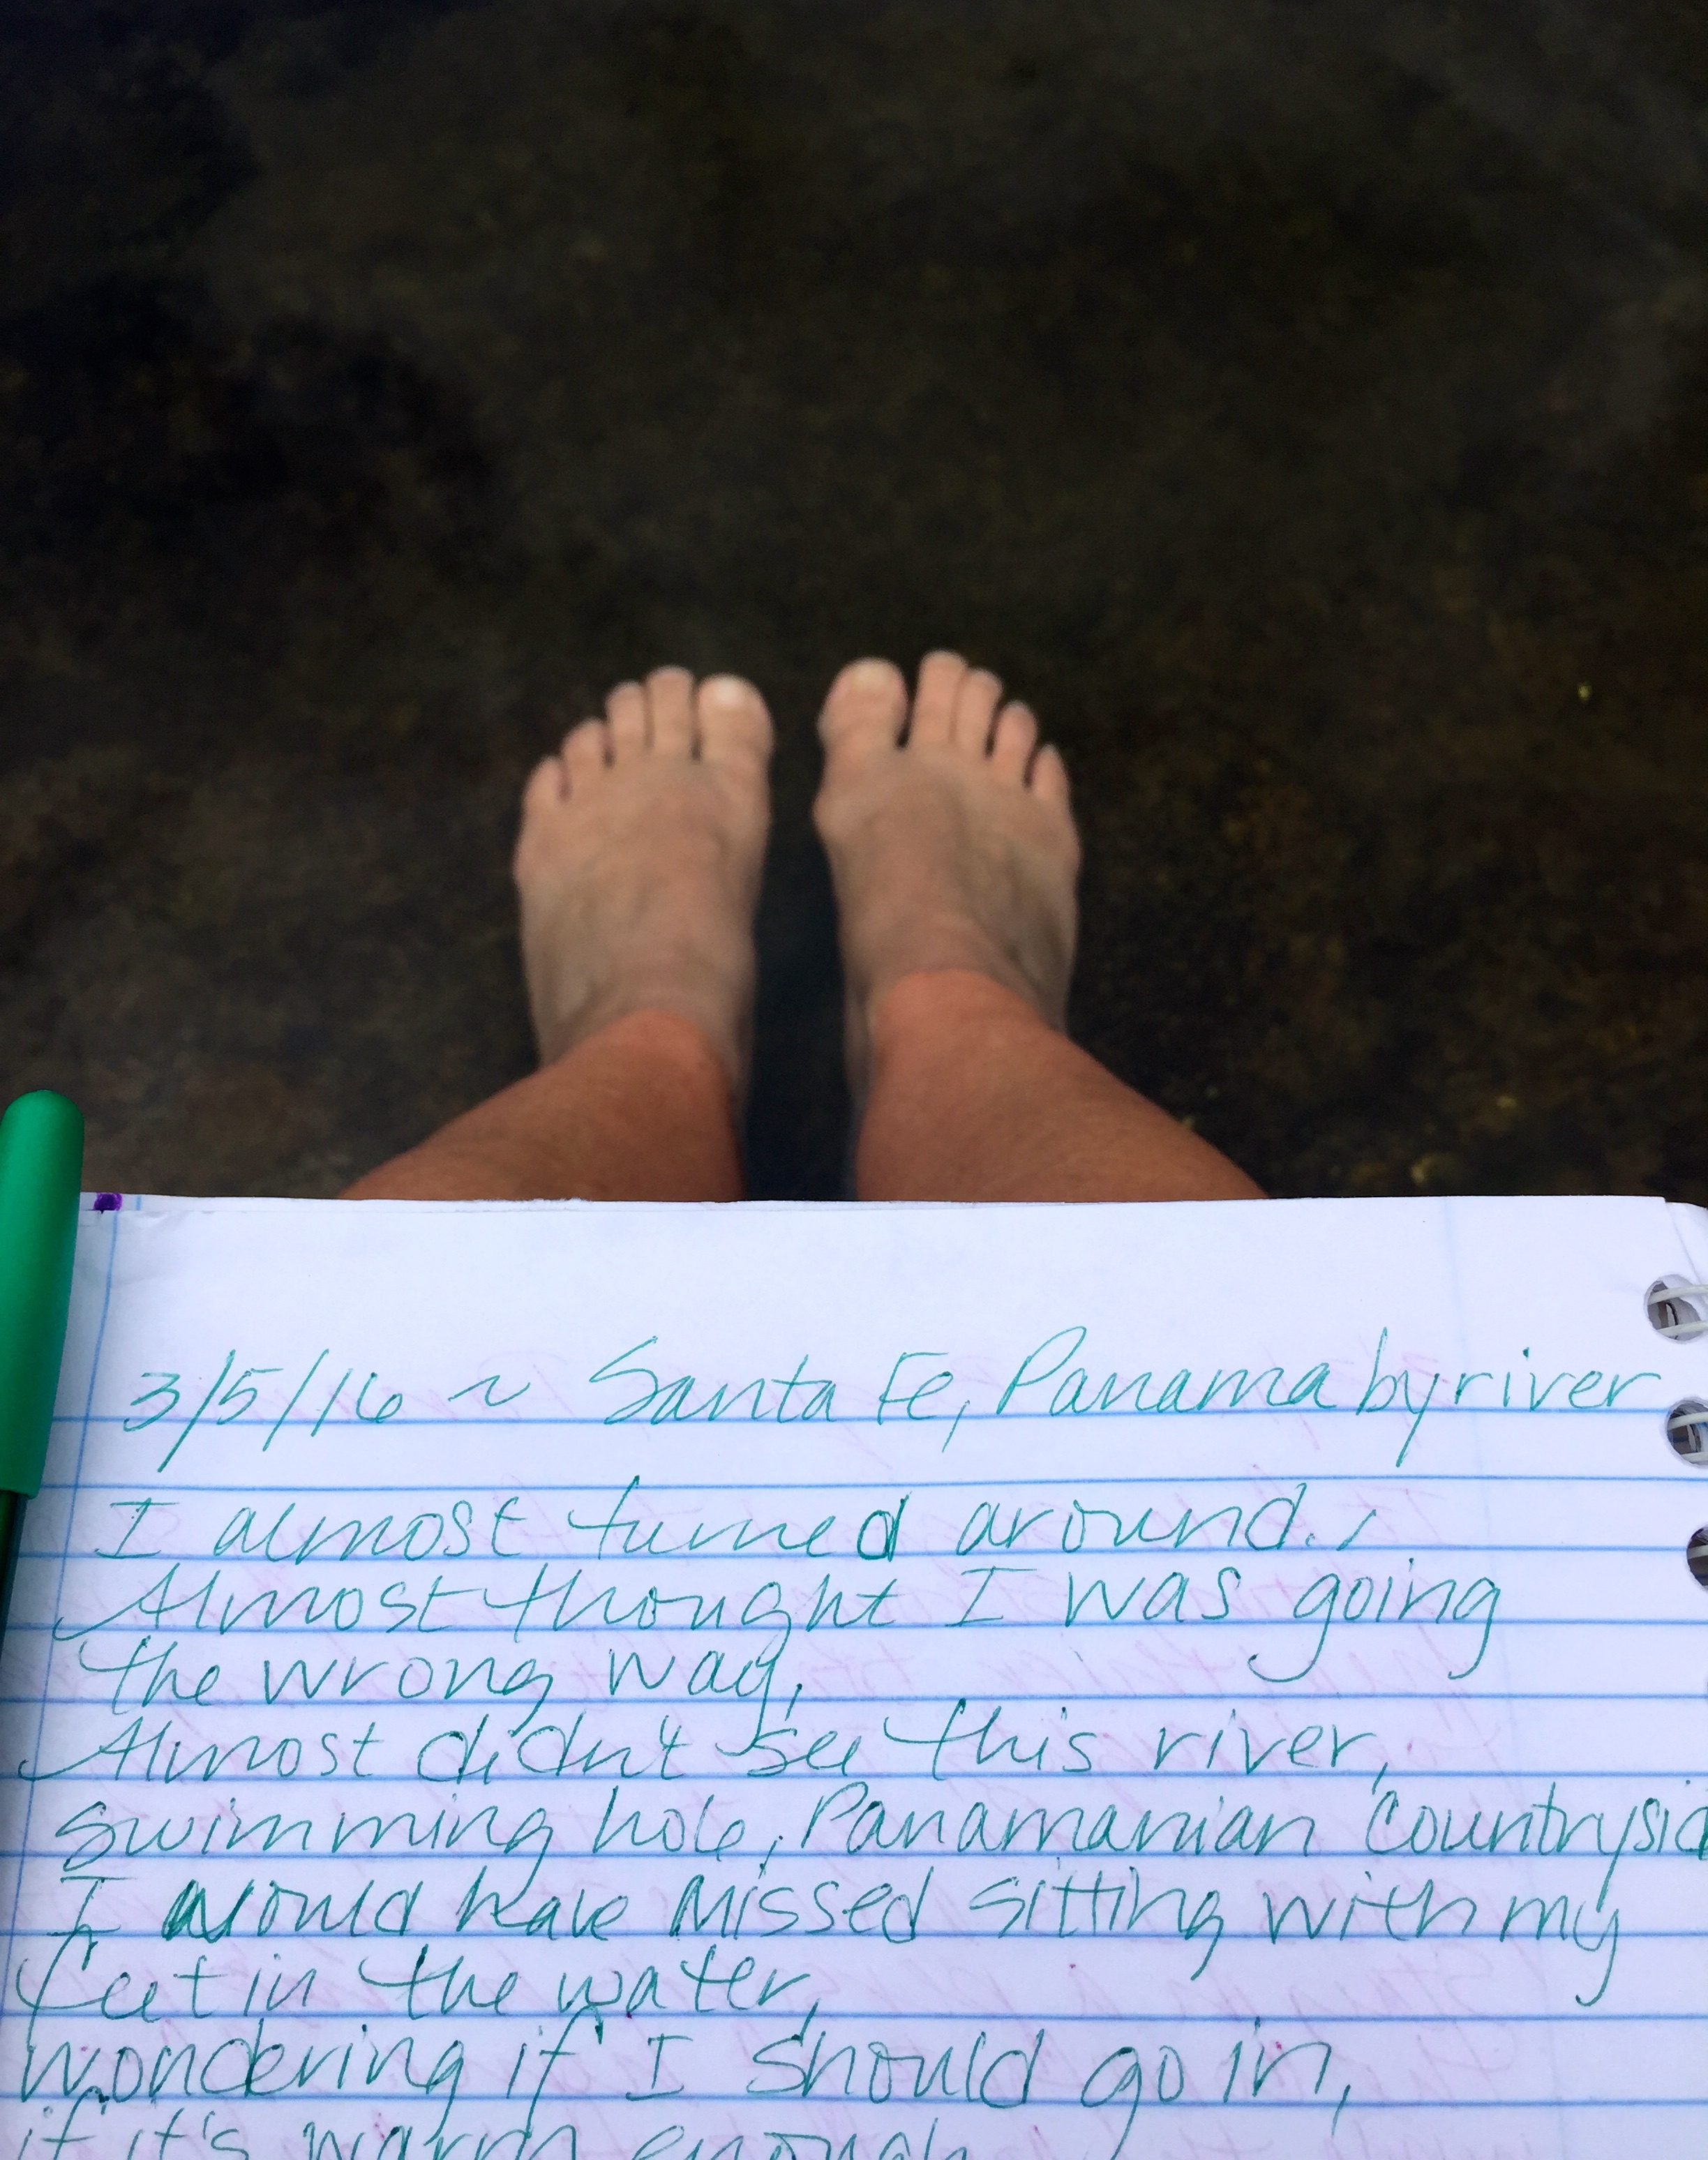 3/5/16 ~ Santa Fe, Panama by river
I almost turned around.
Almost thought I was going
the wrong way,
Almost didn't see this river,
swimming hole, Panamanian Countrysid
I would have missed sitting with my
feet in the water,
wondering if I should go in,
if it's warm enough